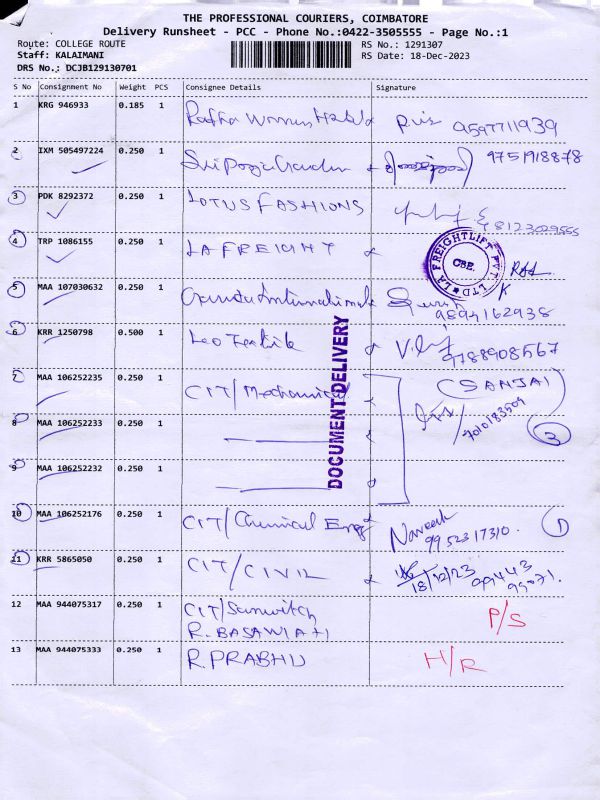 THE PROFESSIONAL COURIERS, COIMBATORE
Delivery Runsheet - PCC - Phone No.:0422-3505555 - Page No.:1
Route: COLLEGE ROUTE
RS No.: 1291307
Staff: KALAIMANI
RS Date: 18-Dec-2023
DRS No.: DCJB129130701
S No Consignment No Weight PCS Consignee Details Signature
1 KRG 946933 0.185 1 9597711939
2 IXM 505497224 0.250 1 9751918878
3 PDK 8292372 0.250 1 LOTUS FASHIONS 98123029555
4 TRP 1086155 0.250 1 LA FREIGHT
LA FREIGHTLIFT PVT. LTD CBE.
5 MAA 107030632 0.250 1 International 9894162938
6 KRR 1250798 0.500 1 Leo Textile 9788908567
7 MAA 106252235 0.250 1 CIT/Mechanical (SANJAI)
7010183509
8 MAA 106252233 0.250 1 3
9 MAA 106252232 0.250 1
DOCUMENT DELIVERY
10 MAA 106252176 0.250 1 CIT/Chemical Engg Naresh 9952317310. 1
11 KRR 5865050 0.250 1 CIT/CIVIL 18/12/23 99443 99071.
12 MAA 944075317 0.250 1 CIT/ P/S
13 MAA 944075333 0.250 1 R.PRABHU H/R